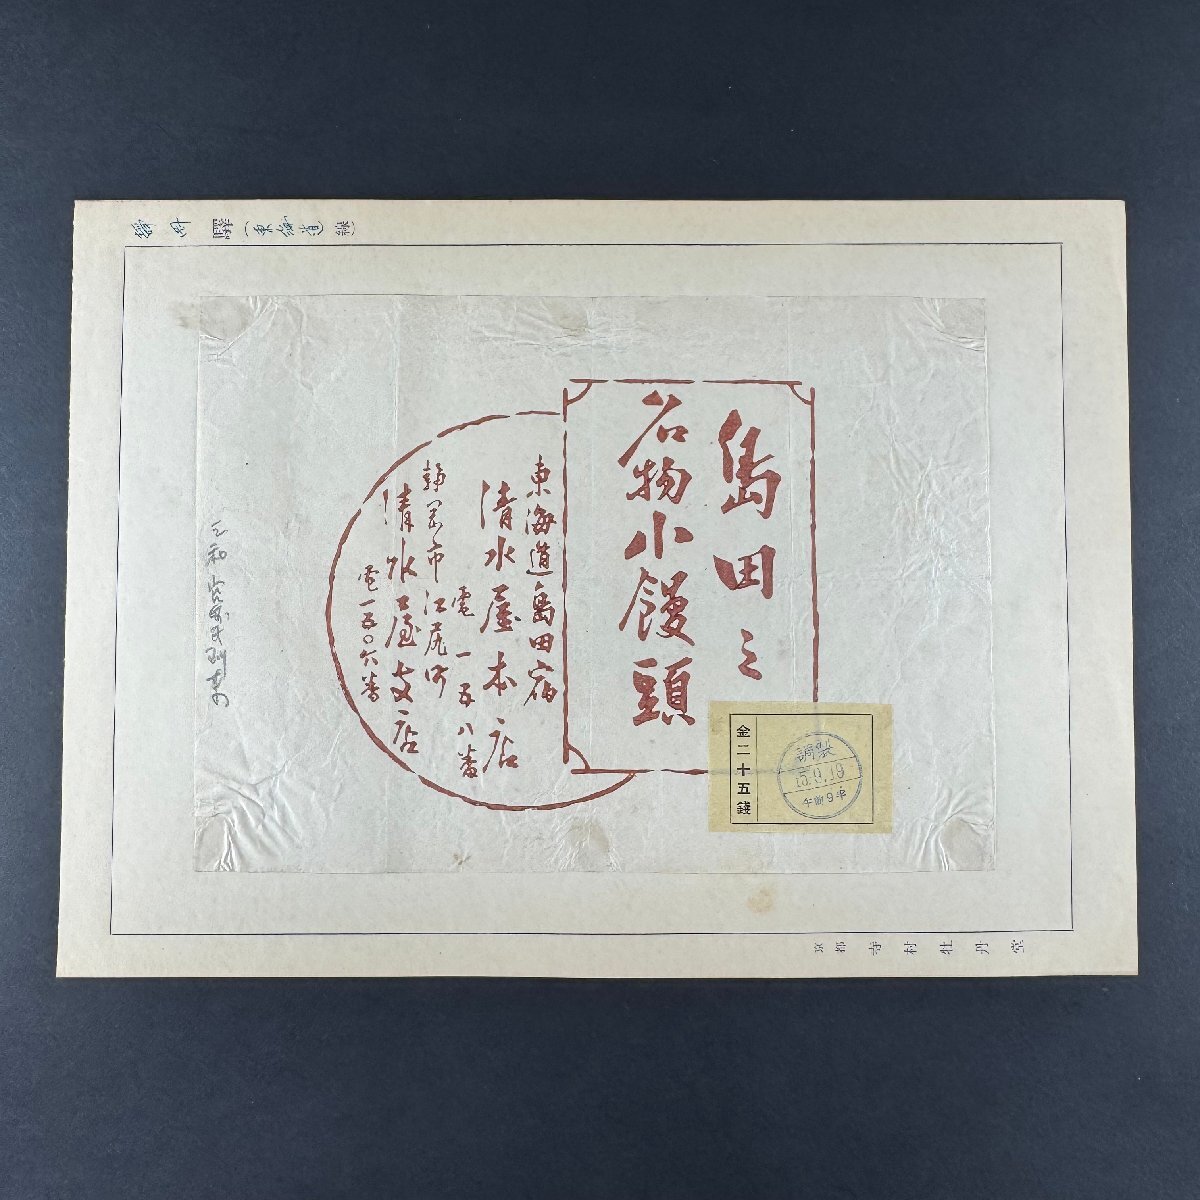 驛(東海道線)
島田ミ
名物小饅頭
東海道島田宿
清水屋本店
電一五八番
靜岡市江尻町
清水屋支店
電一五〇六番
金二十五錢
調製
15.9.19
午前9年
京都 寺村牡丹堂